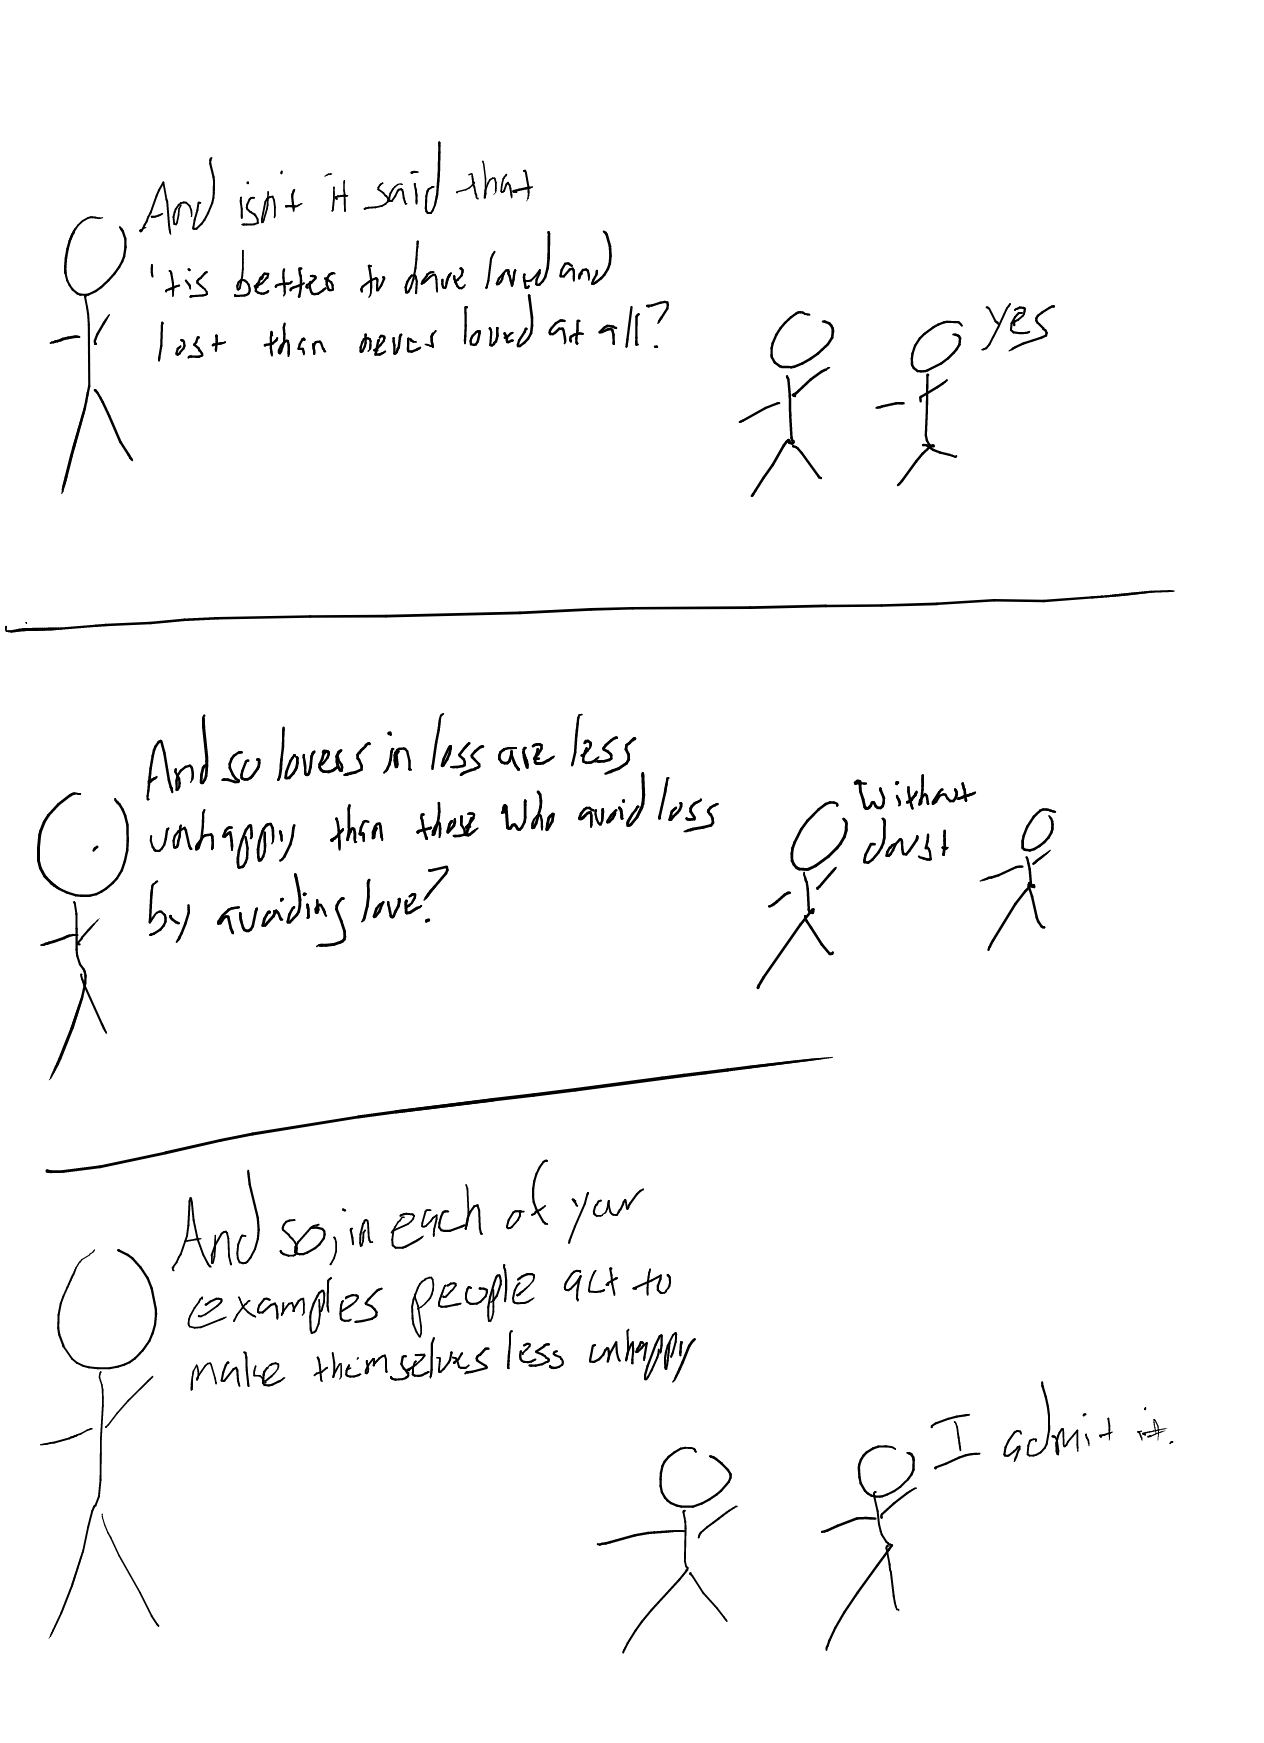 And isn't it said that
'tis better to have loved and
lost than never loved at all?
yes
And so lovers in loss are less
unhappy than those who avoid loss
by avoiding love?
Without
doubt
And so, in each of your
examples people act to
make themselves less unhappy
I admit it.